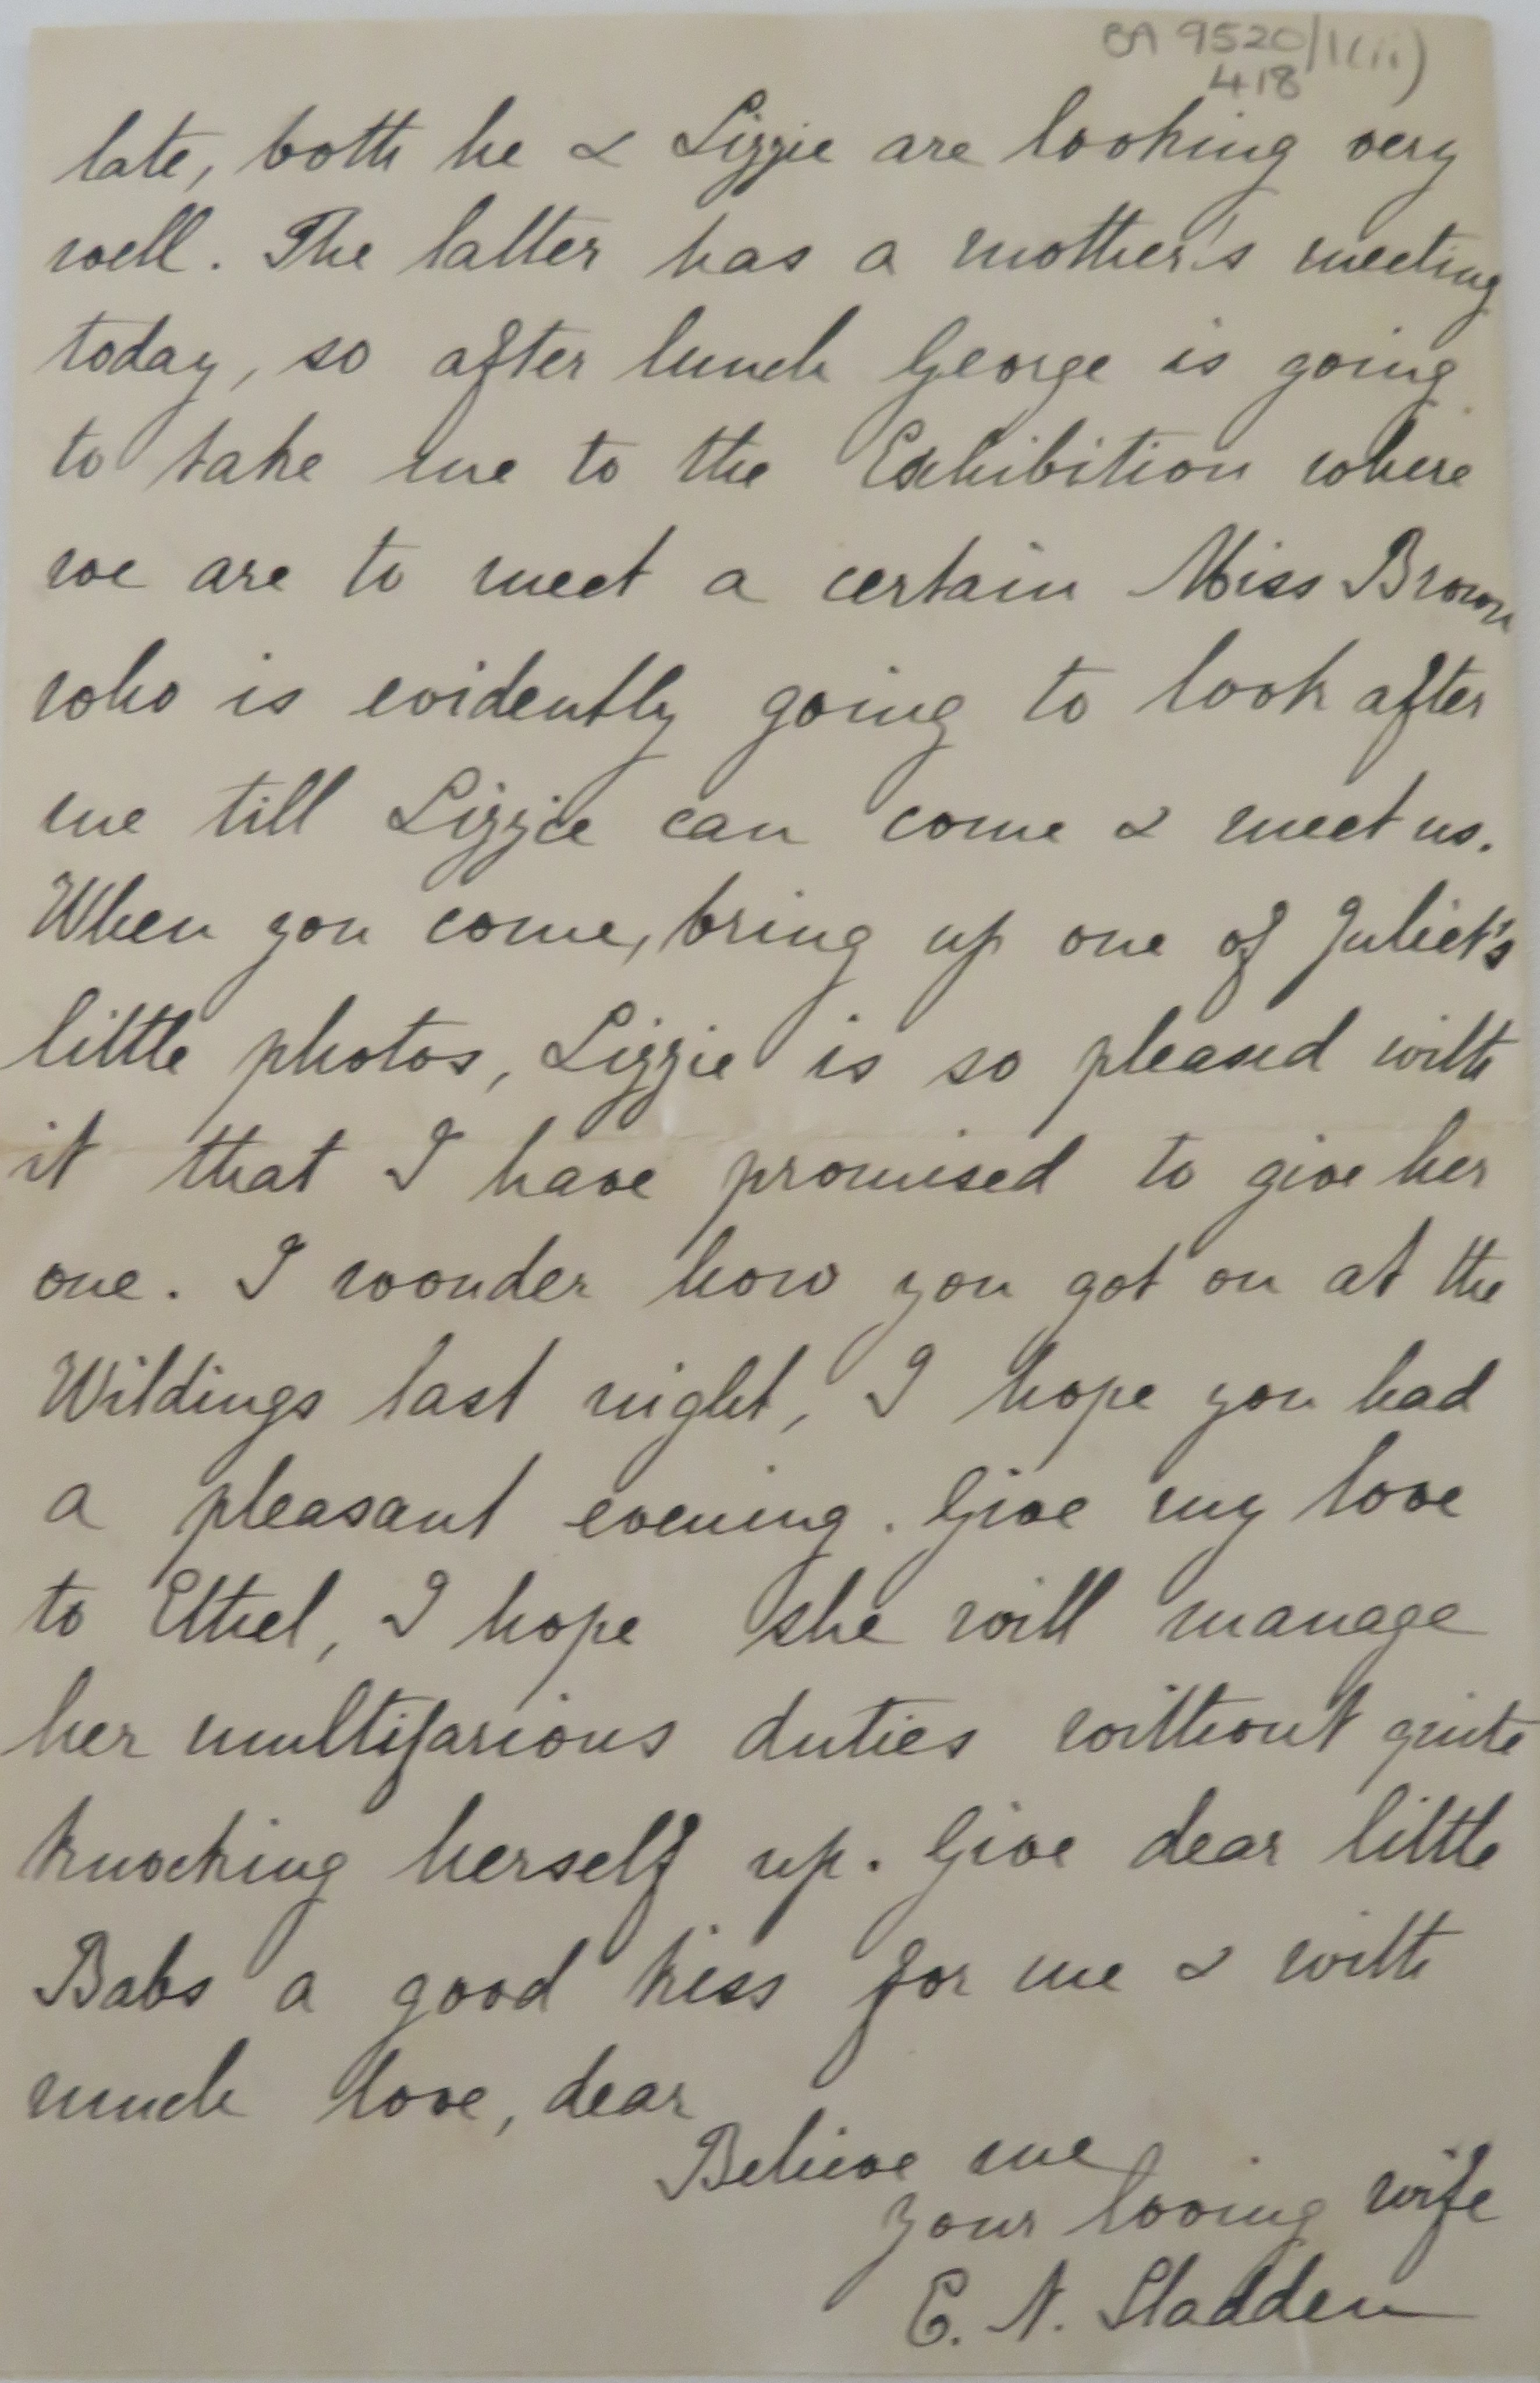 BA 9520/1(ii)
418
late, both he & Lizzie are looking very
well. The latter has a mother's meeting
today, so after lunch George is going
to take me to the Exhibition where
we are to meet a certain Miss Brown
who is evidently going to look after
me till Lizzie can come & meet us.
When you come, bring up one of Juliet's
little photos, Lizzie is so pleased with
it that I have promised to give her
one. I wonder how you got on at the
Wildings last night, I hope you had
a pleasant evening. Give my love
to Ethel, I hope she will manage
her multifarious duties without quite
knocking herself up. Give dear little
Babs a good kiss for me & with
much love, dear
Believe me
your loving wife
E. N. Sladden